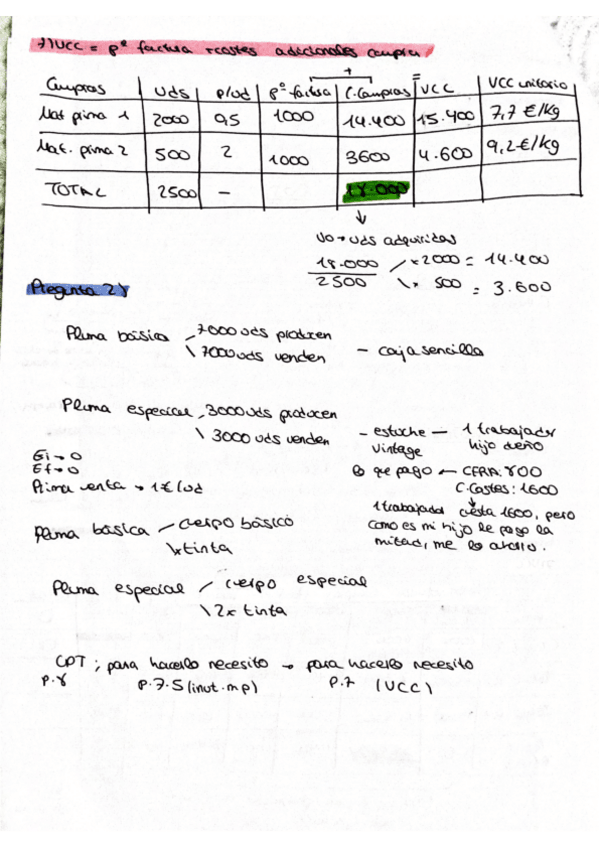 7) VCC = pº factura + costes adicionales compra
+ =
Compras | Uds | p/ud | pº factura | C. Compras | VCC | VCC unitario
Mat prima 1 | 2000 | 0,5 | 1000 | 14.400 | 15.400 | 7,7 €/kg
Mat. prima 2 | 500 | 2 | 1000 | 3600 | 4.600 | 9,2 €/kg
TOTAL | 2500 | - | 18.000
↓
Uo → Uds adquiridas
18.000 / 2500 x 2000 = 14.400
x 500 = 3.600
Pregunta 2)
Pluma básica - 7000 uds producen
\ 7000 uds venden - caja sencilla
Pluma especial - 3000 uds producen
\ 3000 uds venden - estuche vintage - 1 trabajador hijo dueño
Ei → 0
Ef → 0
Prima venta → 1€/ud
lo que pago - CFRA: 800
C. Costes: 1600
↓
1 trabajador cuesta 1600, pero
como es mi hijo le pago la
mitad, me lo ahorro.
Pluma básica - cuerpo básico
\ x tinta
Pluma especial / cuerpo especial
\ 2x tinta
CPT ; para hacerlo necesito → para hacerlo necesito
p.8 p.7.5 (inut. mp) p.7 (VCC)